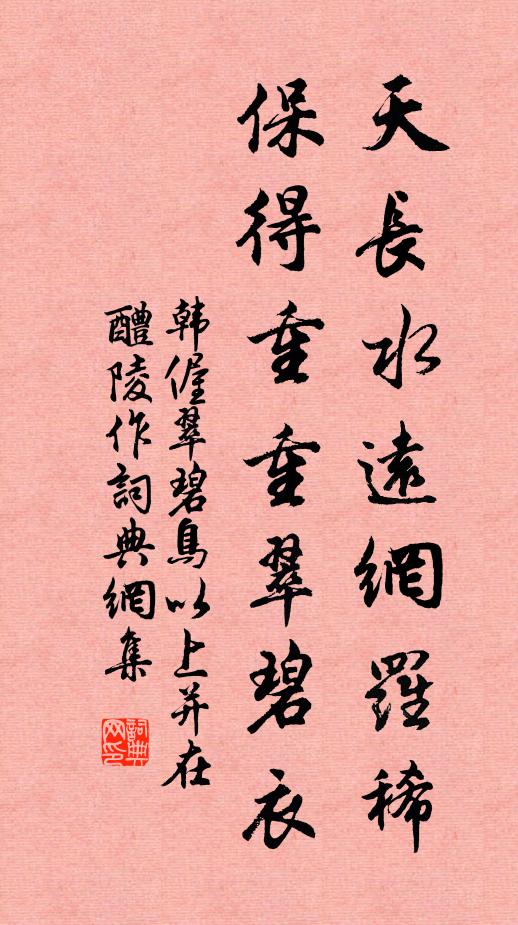 天長水遠網羅稀
保得重重翠碧衣
韩偓翠碧鳥以上并在
醴陵作詞典網集
詞典网印